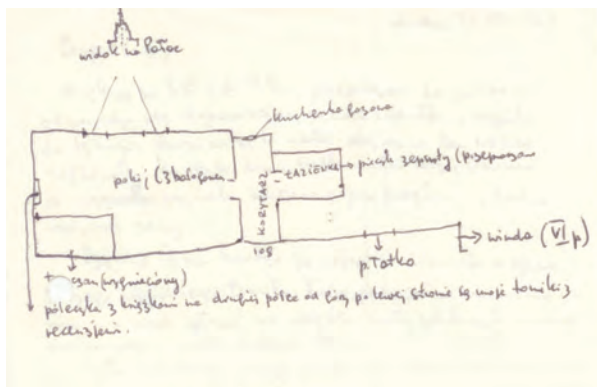 widok na Pałac
kuchenka gazowa
pokój (z balkonem
KORYTARZ
łazienka
piecyk zepsuty (przepraszam
108
p. Tatko
winda (VI p)
(wygnieciony)
półeczka z książkami na drugiej półce od góry po lewej stronie są moje tomiki z
recenzjami.